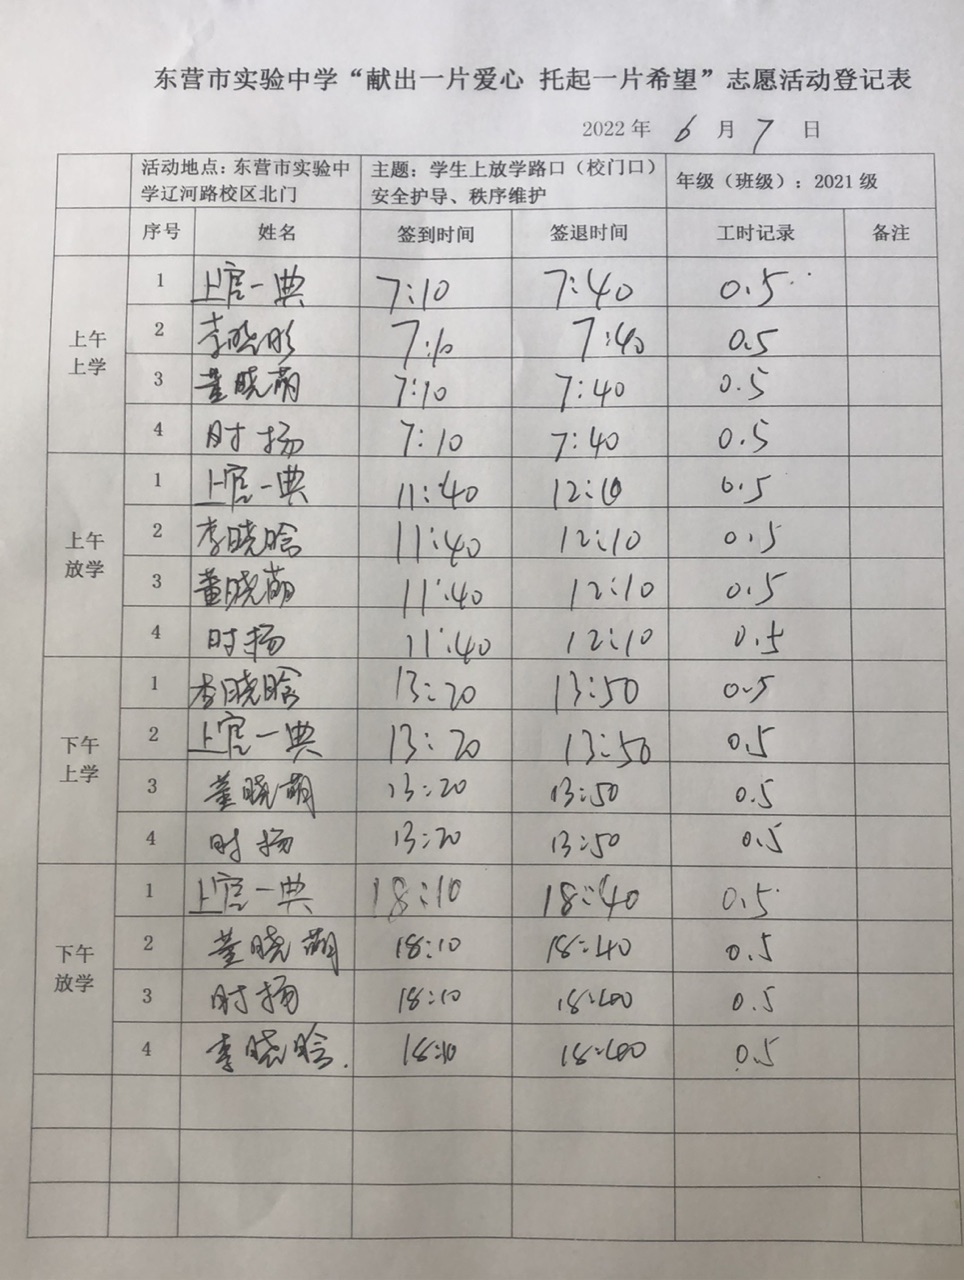 东营市实验中学“献出一片爱心 托起一片希望”志愿活动登记表
2022 年 6 月 7 日
活动地点：东营市实验中学辽河路校区北门 主题：学生上放学路口（校门口）安全护导、秩序维护 年级（班级）：2021 级
序号 姓名 签到时间 签退时间 工时记录 备注
上午上学
1 上官一典 7:10 7:40 0.5
2 李晓晗 7:10 7:40 0.5
3 董晓萌 7:10 7:40 0.5
4 时扬 7:10 7:40 0.5
上午放学
1 上官一典 11:40 12:10 0.5
2 李晓晗 11:40 12:10 0.5
3 董晓萌 11:40 12:10 0.5
4 时扬 11:40 12:10 0.5
下午上学
1 李晓晗 13:20 13:50 0.5
2 上官一典 13:20 13:50 0.5
3 董晓萌 13:20 13:50 0.5
4 时扬 13:20 13:50 0.5
下午放学
1 上官一典 18:10 18:40 0.5
2 董晓萌 18:10 18:40 0.5
3 时扬 18:10 18:40 0.5
4 李晓晗. 18:10 18:40 0.5